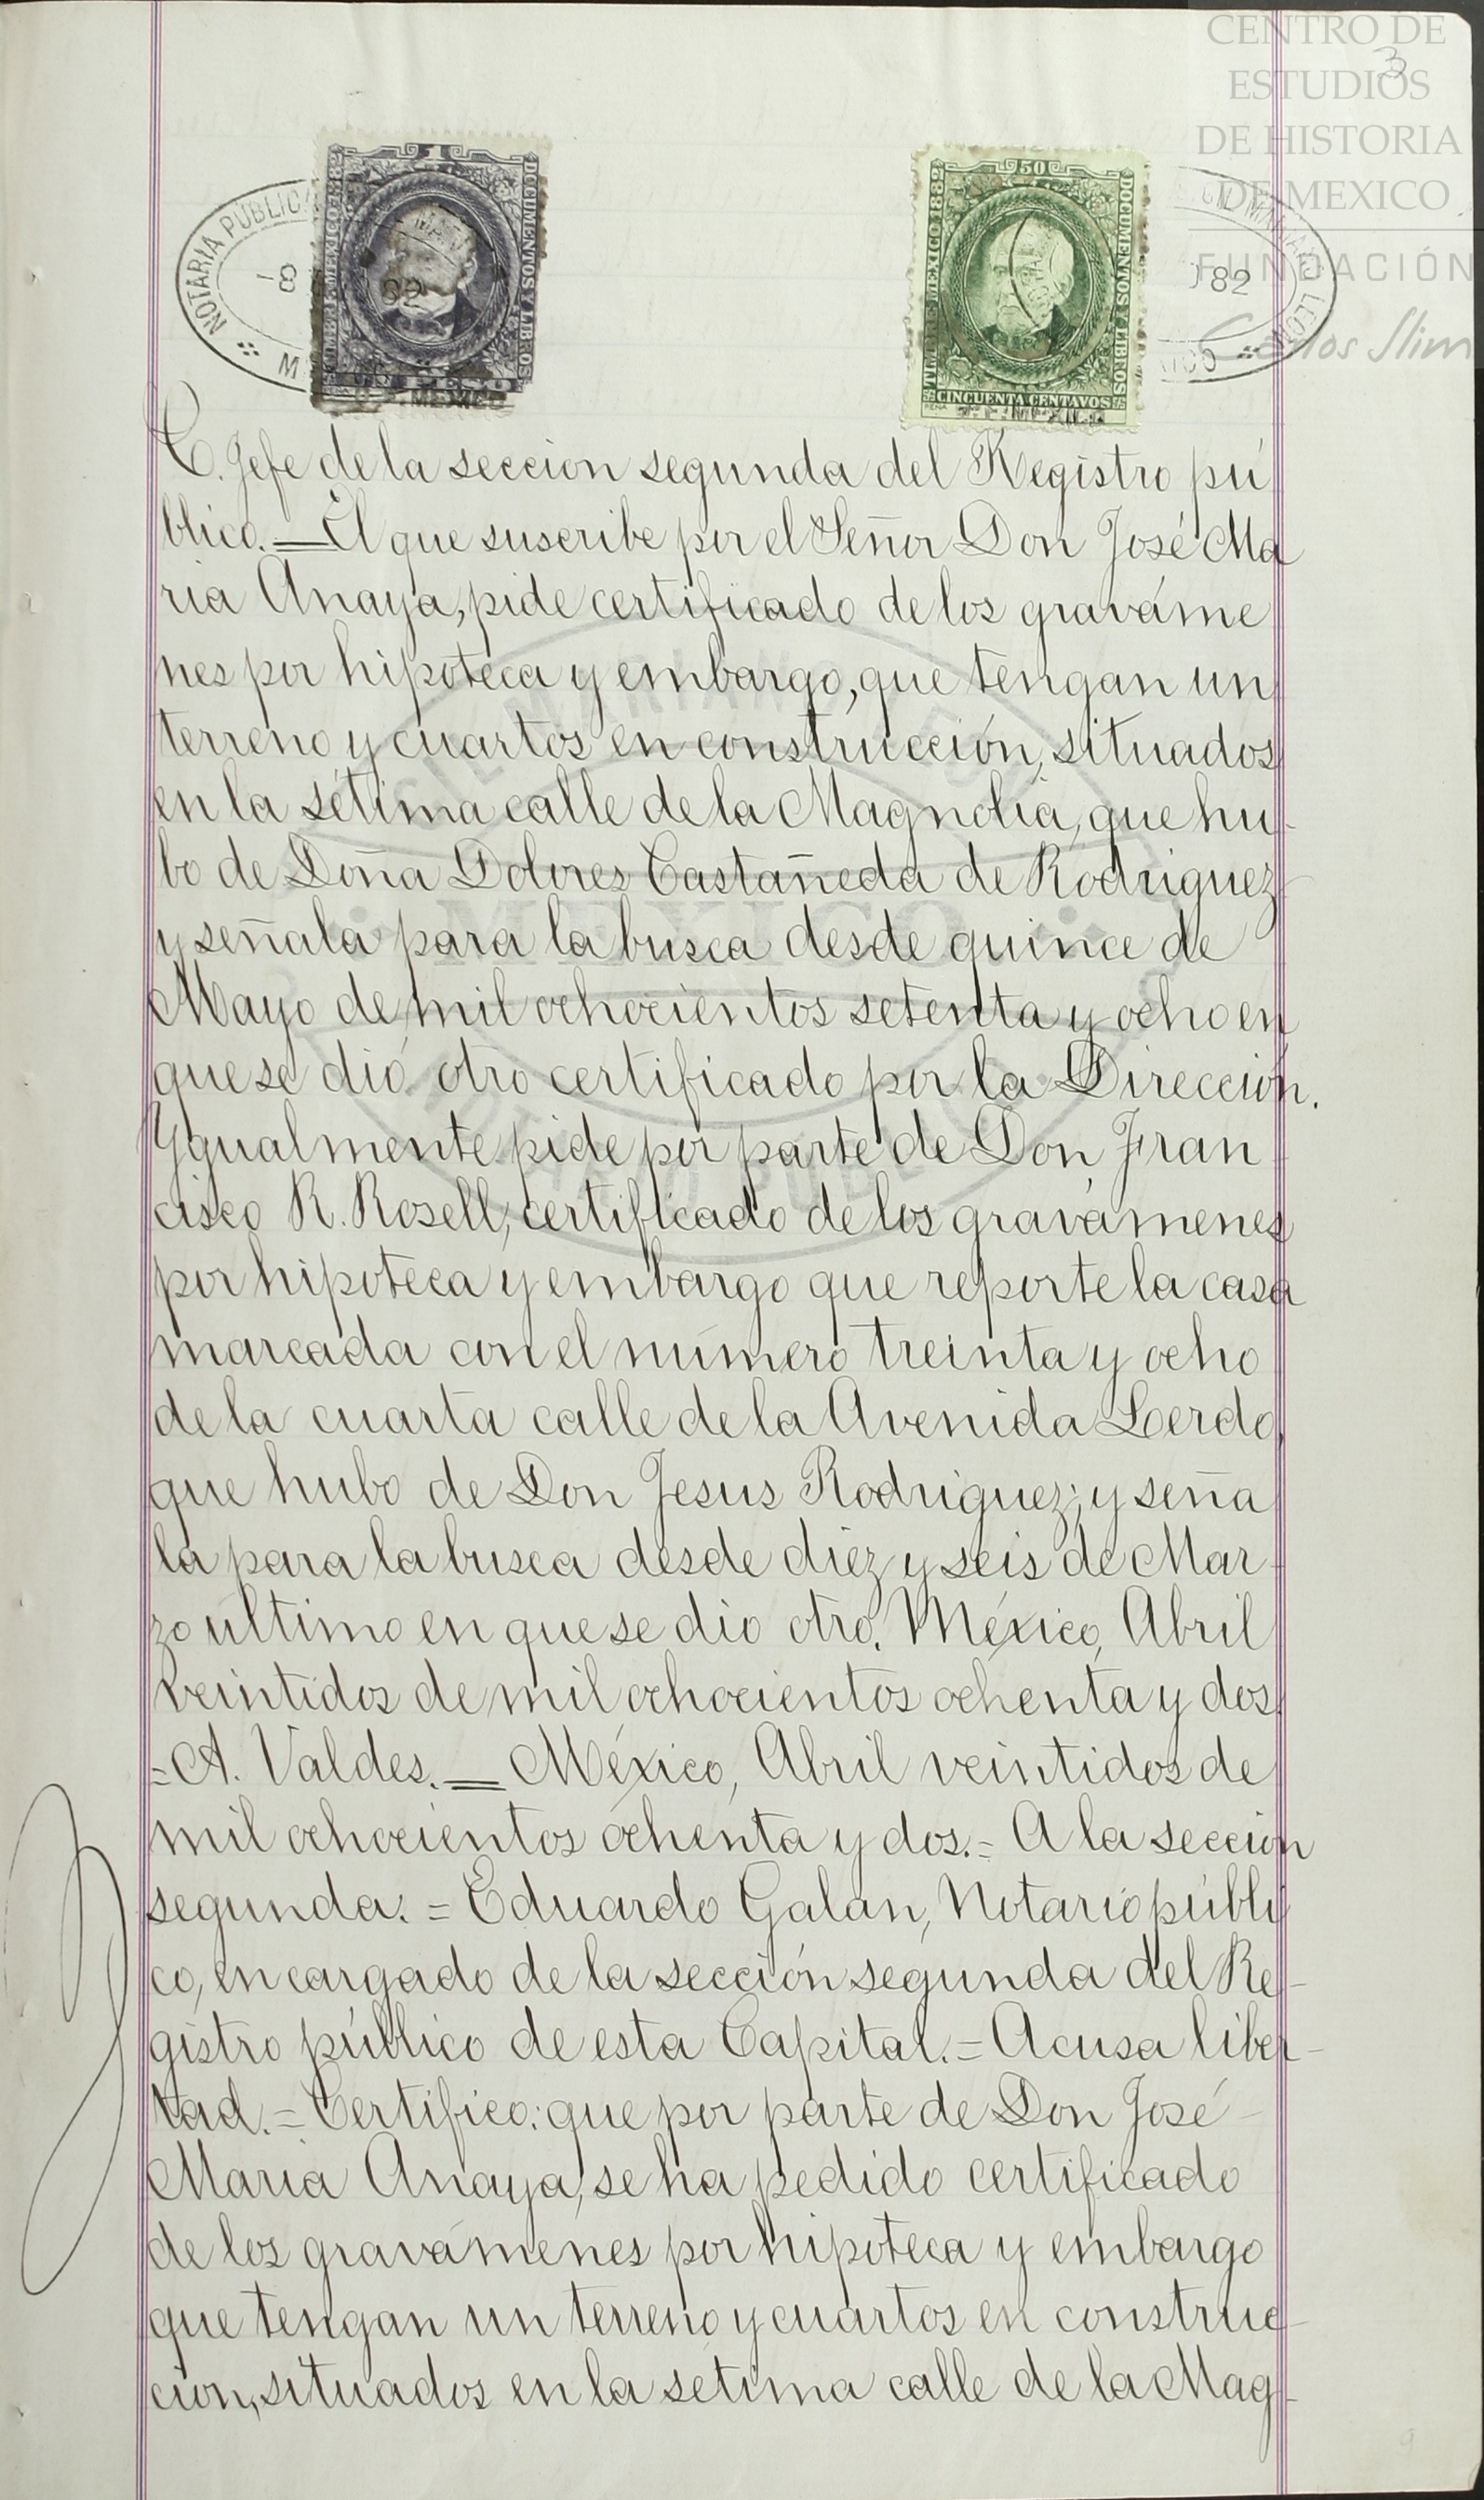 CENTRO DE
ESTUDIOS
DE HISTORIA
DE MEXICO
FUNDACIÓN
Carlos Slim
3
NOTARIA PUBLICA
DOCUMENTOS Y LIBROS
50
TIMBRE MEXICO 188
DOCUMENTOS Y LIBROS
CINCUENTA CENTAVOS
82
C. Jefe de la seccion segunda del Registro pú
blico. = El que suscribe por el Señor Don José Ma
ria Anaya, pide certificado de los graváme
nes por hipoteca y embargo, que tengan un
terreno y cuartos en construcción, situados
en la sétima calle de la Magnolia, que hu-
bo de Doña Dolores Castañeda de Rodriguez
y señala para la busca desde quince de
Mayo de mil ochocientos setenta y ocho en
que se dió otro certificado por la Dirección.
Ygualmente pide por parte de Don Fran
cisco R. Rosell, certificado de los gravámenes
por hipoteca y embargo que reporte la casa
marcada con el número treinta y ocho
de la cuarta calle de la Avenida Lerdo,
que hubo de Don Jesus Rodriguez; y seña
la para la busca desde diez y seis de Mar-
zo último en que se dio otro. México, Abril
veintidos de mil ochocientos ochenta y dos.
= A. Valdes. = México, Abril veintidos de
mil ochocientos ochenta y dos. = A la sección
segunda. = Eduardo Galan, Notario públi
co, encargado de la sección segunda del Re-
gistro público de esta Capital. = Acusa liber-
tad. = Certifico: que por parte de Don José
Maria Anaya, se ha pedido certificado
de los gravámenes por hipoteca y embargo
que tengan un terreno y cuartos en construc-
cion, situados en la sétima calle de la Mag-